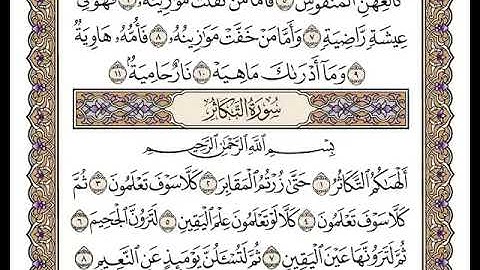 كَٱلْعِهْنِ ٱلْمَنفُوشِ ٥ فَأَمَّا مَن ثَقُلَتْ مَوَٰزِينُهُۥ ٦ فَهُوَ فِى
عِيشَةٍ رَّاضِيَةٍ ٧ وَأَمَّا مَنْ خَفَّتْ مَوَٰزِينُهُۥ ٨ فَأُمُّهُۥ هَاوِيَةٌ
٩ وَمَآ أَدْرَىٰكَ مَا هِيَهْ ١٠ نَارٌ حَامِيَةٌۢ ١١
سُورَةُ التَّكَاثُرِ
بِسْمِ ٱللَّهِ ٱلرَّحْمَٰنِ ٱلرَّحِيمِ
أَلْهَىٰكُمُ ٱلتَّكَاثُرُ ١ حَتَّىٰ زُرْتُمُ ٱلْمَقَابِرَ ٢ كَلَّا سَوْفَ تَعْلَمُونَ ٣ ثُمَّ
كَلَّا سَوْفَ تَعْلَمُونَ ٤ كَلَّا لَوْ تَعْلَمُونَ عِلْمَ ٱلْيَقِينِ ٥ لَتَرَوُنَّ ٱلْجَحِيمَ ٦
ثُمَّ لَتَرَوُنَّهَا عَيْنَ ٱلْيَقِينِ ٧ ثُمَّ لَتُسْـَٔلُنَّ يَوْمَئِذٍ عَنِ ٱلنَّعِيمِ ٨